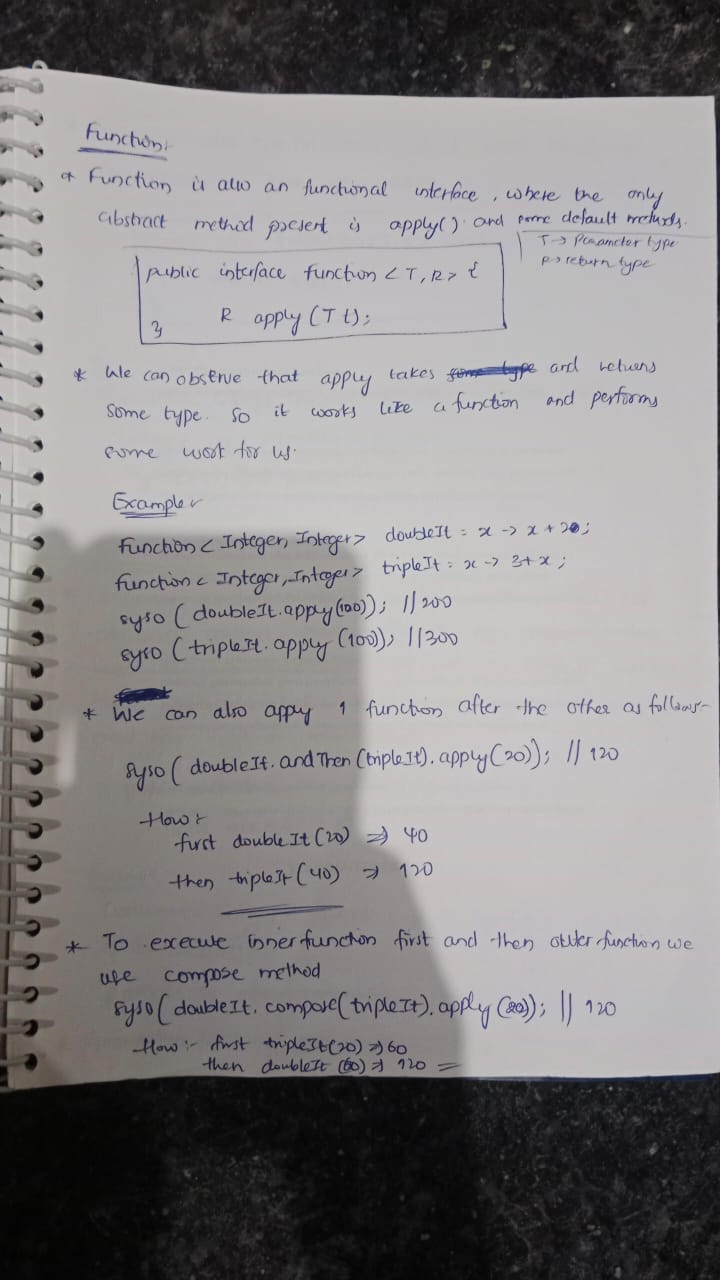 Function:-
* Function is also an functional interface, where the only
abstract method present is apply() and some default methods.
T → Parameter type
R → return type
public interface Function < T, R > {
R apply (T t);
}
* We can observe that apply takes and returns
some type. So it works like a function and performs
some work for us.
Example :-
Function < Integer, Integer > doubleIt = x -> x + 20;
Function < Integer, Integer > tripleIt = x -> 3 + x ;
syso ( doubleIt.apply(100)); // 200
syso ( tripleIt. apply (100)); // 300
* We can also apply 1 function after the other as follows:-
syso ( doubleIt. andThen (tripleIt). apply(20)); // 120
How :-
first doubleIt (20) => 40
then tripleIt (40) => 120
* To execute inner function first and then outer function we
use compose method
syso ( doubleIt. compose( tripleIt). apply (20)); // 120
How :- first tripleIt(20) => 60
then doubleIt (60) => 120